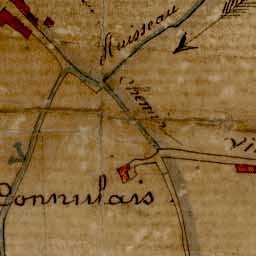 Ruisseau
Chemin
Vi
Connulais